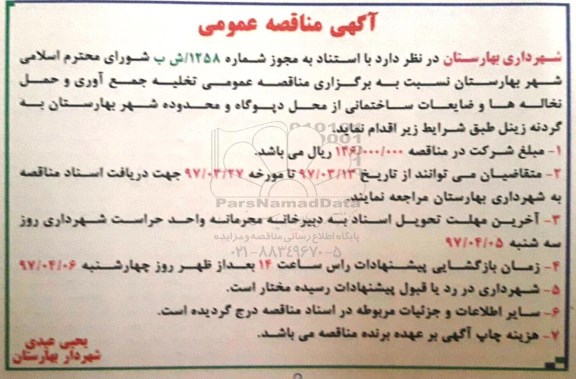 آگهی مناقصه عمومی
شهرداری بهارستان در نظر دارد با استناد به مجوز شماره ۱۲۵۸/ش ب شورای محترم اسلامی
شهر بهارستان نسبت به برگزاری مناقصه عمومی تخلیه جمع آوری و حمل
نخاله ها و ضایعات ساختمانی از محل دپوگاه و محدوده شهر بهارستان به
گردنه زینل طبق شرایط زیر اقدام نماید.
۱- مبلغ شرکت در مناقصه ۱۴۶/۰۰۰/۰۰۰ ریال می باشد.
۲- متقاضیان می توانند از تاریخ ۹۷/۰۳/۱۳ تا مورخه ۹۷/۰۳/۲۷ جهت دریافت اسناد مناقصه
به شهرداری بهارستان مراجعه نمایند.
ParsNamadData
۳- آخرین مهلت تحویل اسناد به دبیرخانه محرمانه واحد حراست شهرداری روز
پایگاه اطلاع رسانی مناقصه و مزایده
سه شنبه ۹۷/۰۴/۰۵
۰۲۱-۸۸۳۴۹۶۷۰-۵
۴- زمان بازگشایی پیشنهادات راس ساعت ۱۴ بعداز ظهر روز چهارشنبه ۹۷/۰۴/۰۶
۵- شهرداری در رد یا قبول پیشنهادات رسیده مختار است.
۶- سایر اطلاعات و جزئیات مربوطه در اسناد مناقصه درج گردیده است.
۷- هزینه چاپ آگهی بر عهده برنده مناقصه می باشد.
یحیی عبدی
شهردار بهارستان